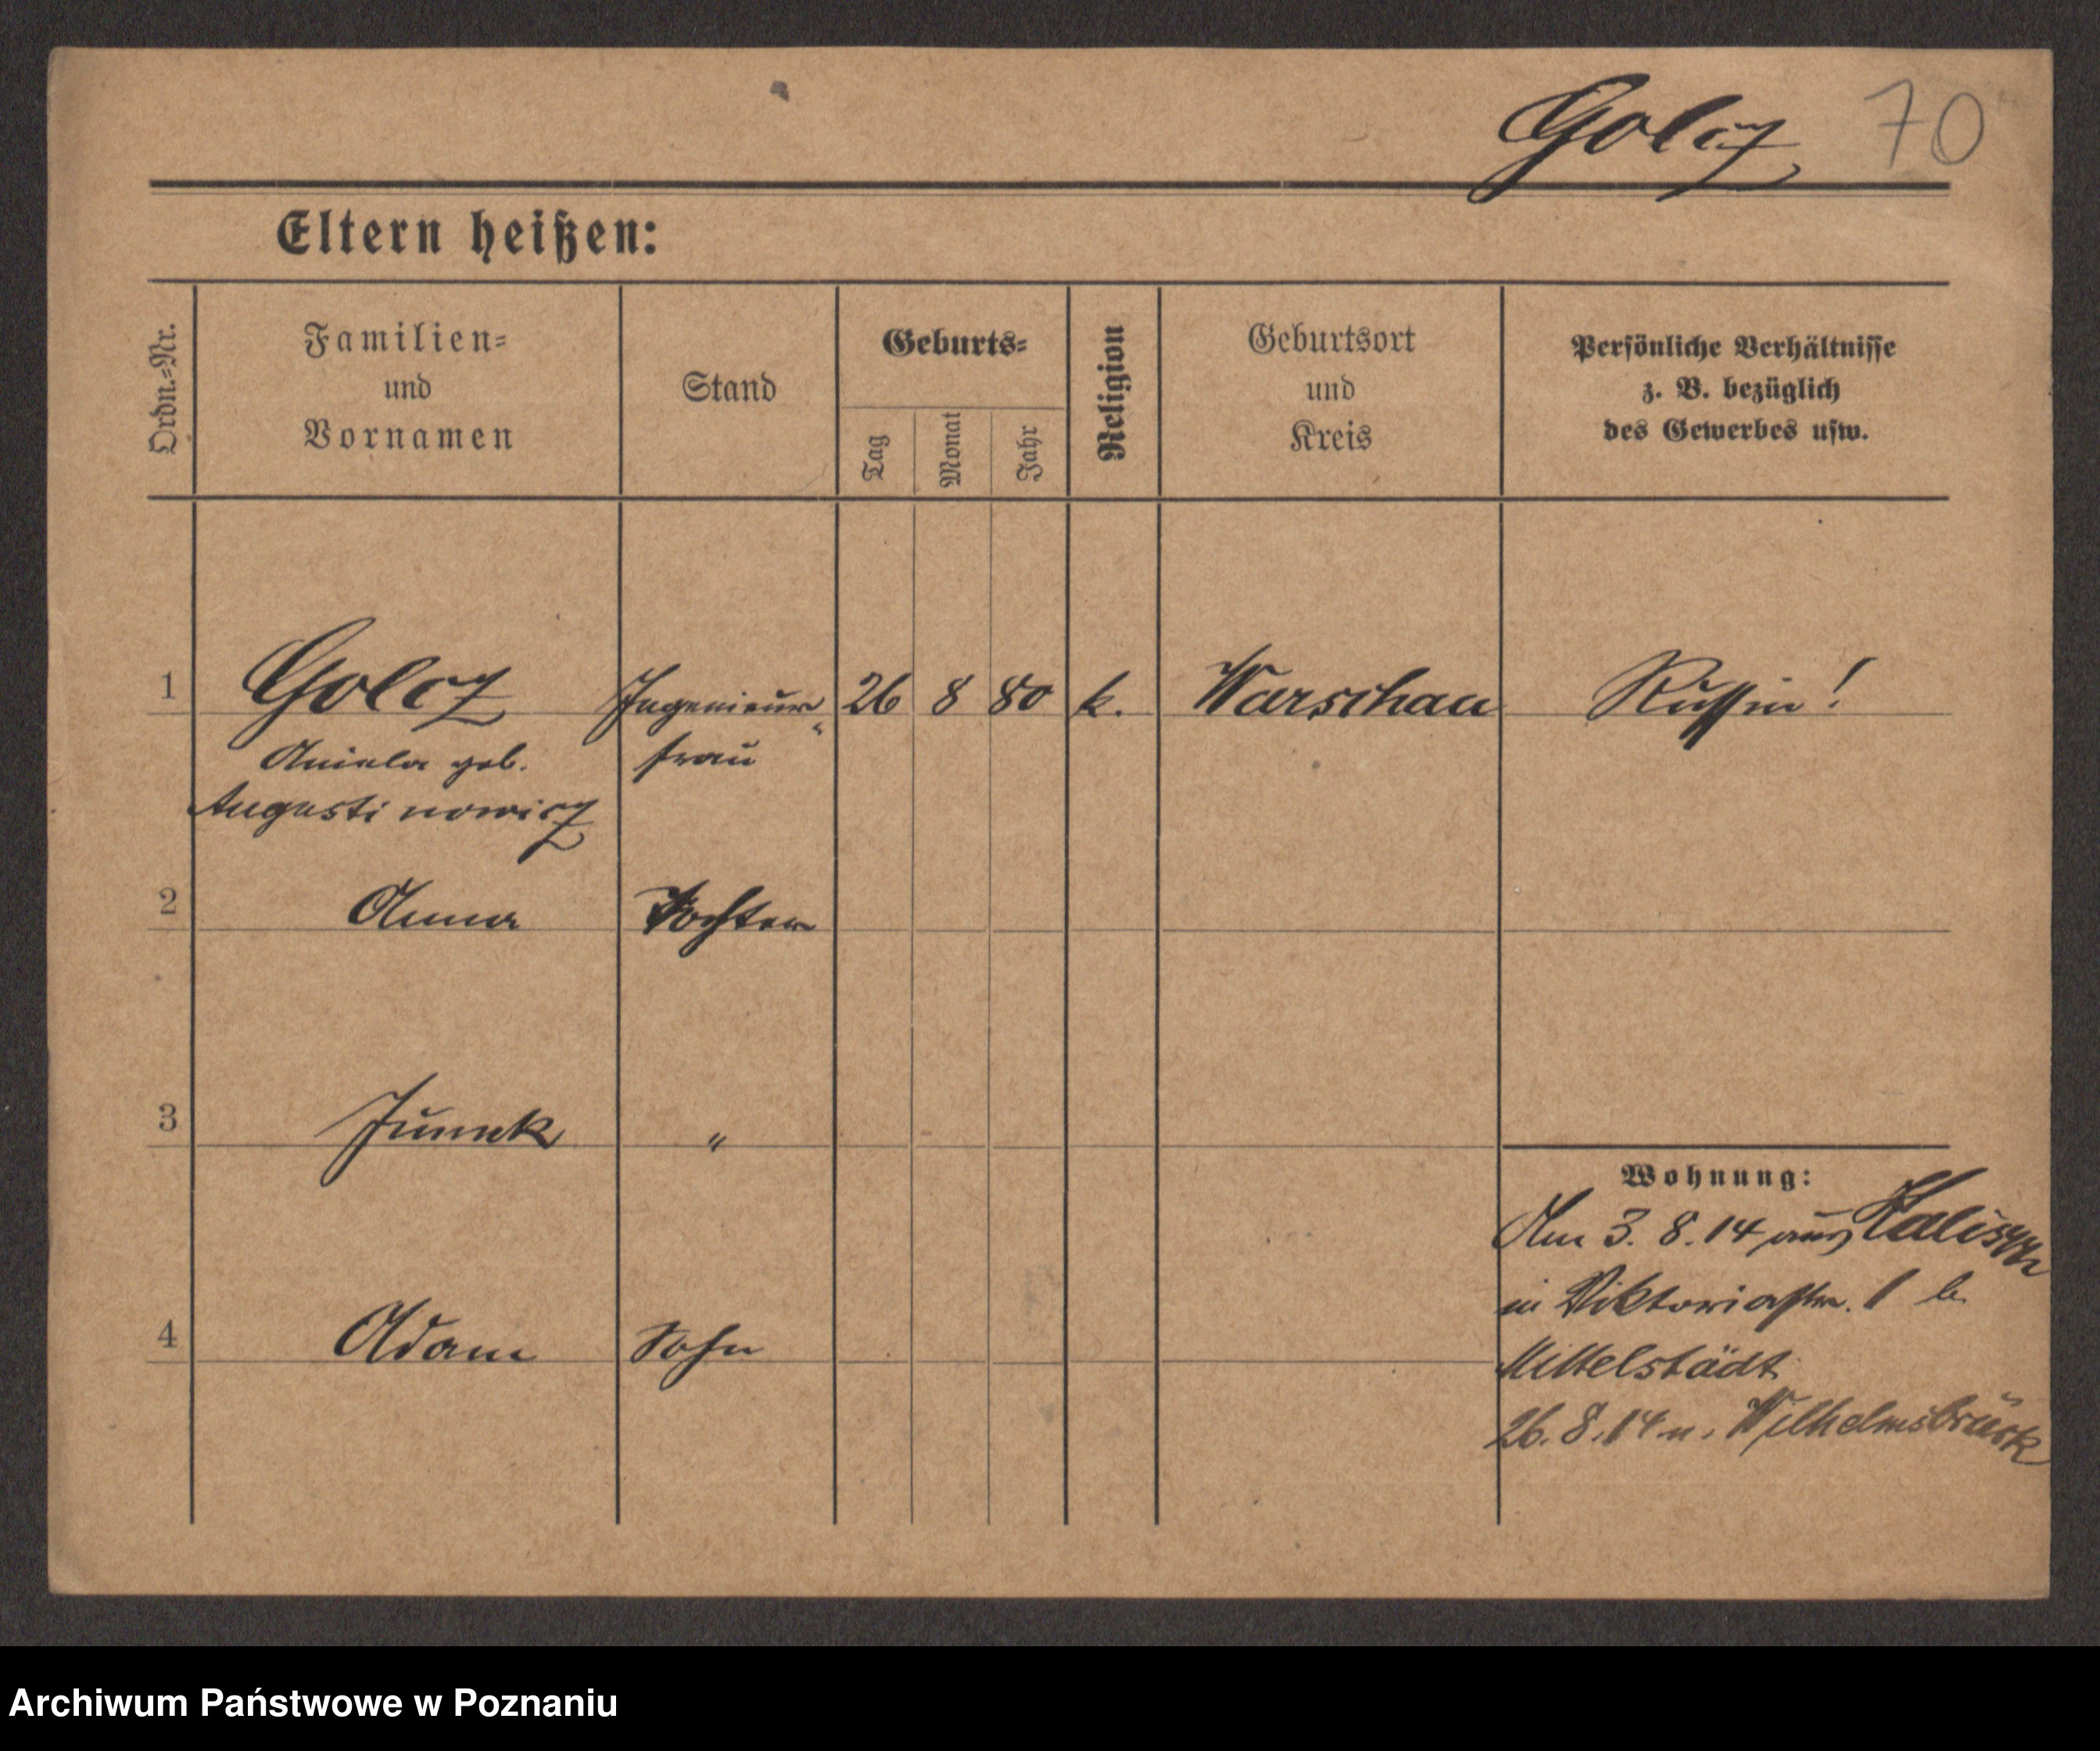 Golcz 70
Eltern heißen:
Ordn.-Nr.
Familien-
und
Vornamen
Stand
Geburts-
Tag
Monat
Jahr
Religion
Geburtsort
und
Kreis
Persönliche Verhältnisse
z. B. bezüglich
des Gewerbes usw.
1 Golcz Ingenieur- 26 8 80 k. Warschau Russin!
Aniela geb. frau
Augustinowicz
2 Anna Tochter
3 "
Wohnung:
Am 3. 8. 14 aus Kalisch
in Viktoriastr. 1 b.
4 Adam Sohn
Mittelstädt
26. 8. 14 n. Wilhelmsbrück
Archiwum Państwowe w Poznaniu